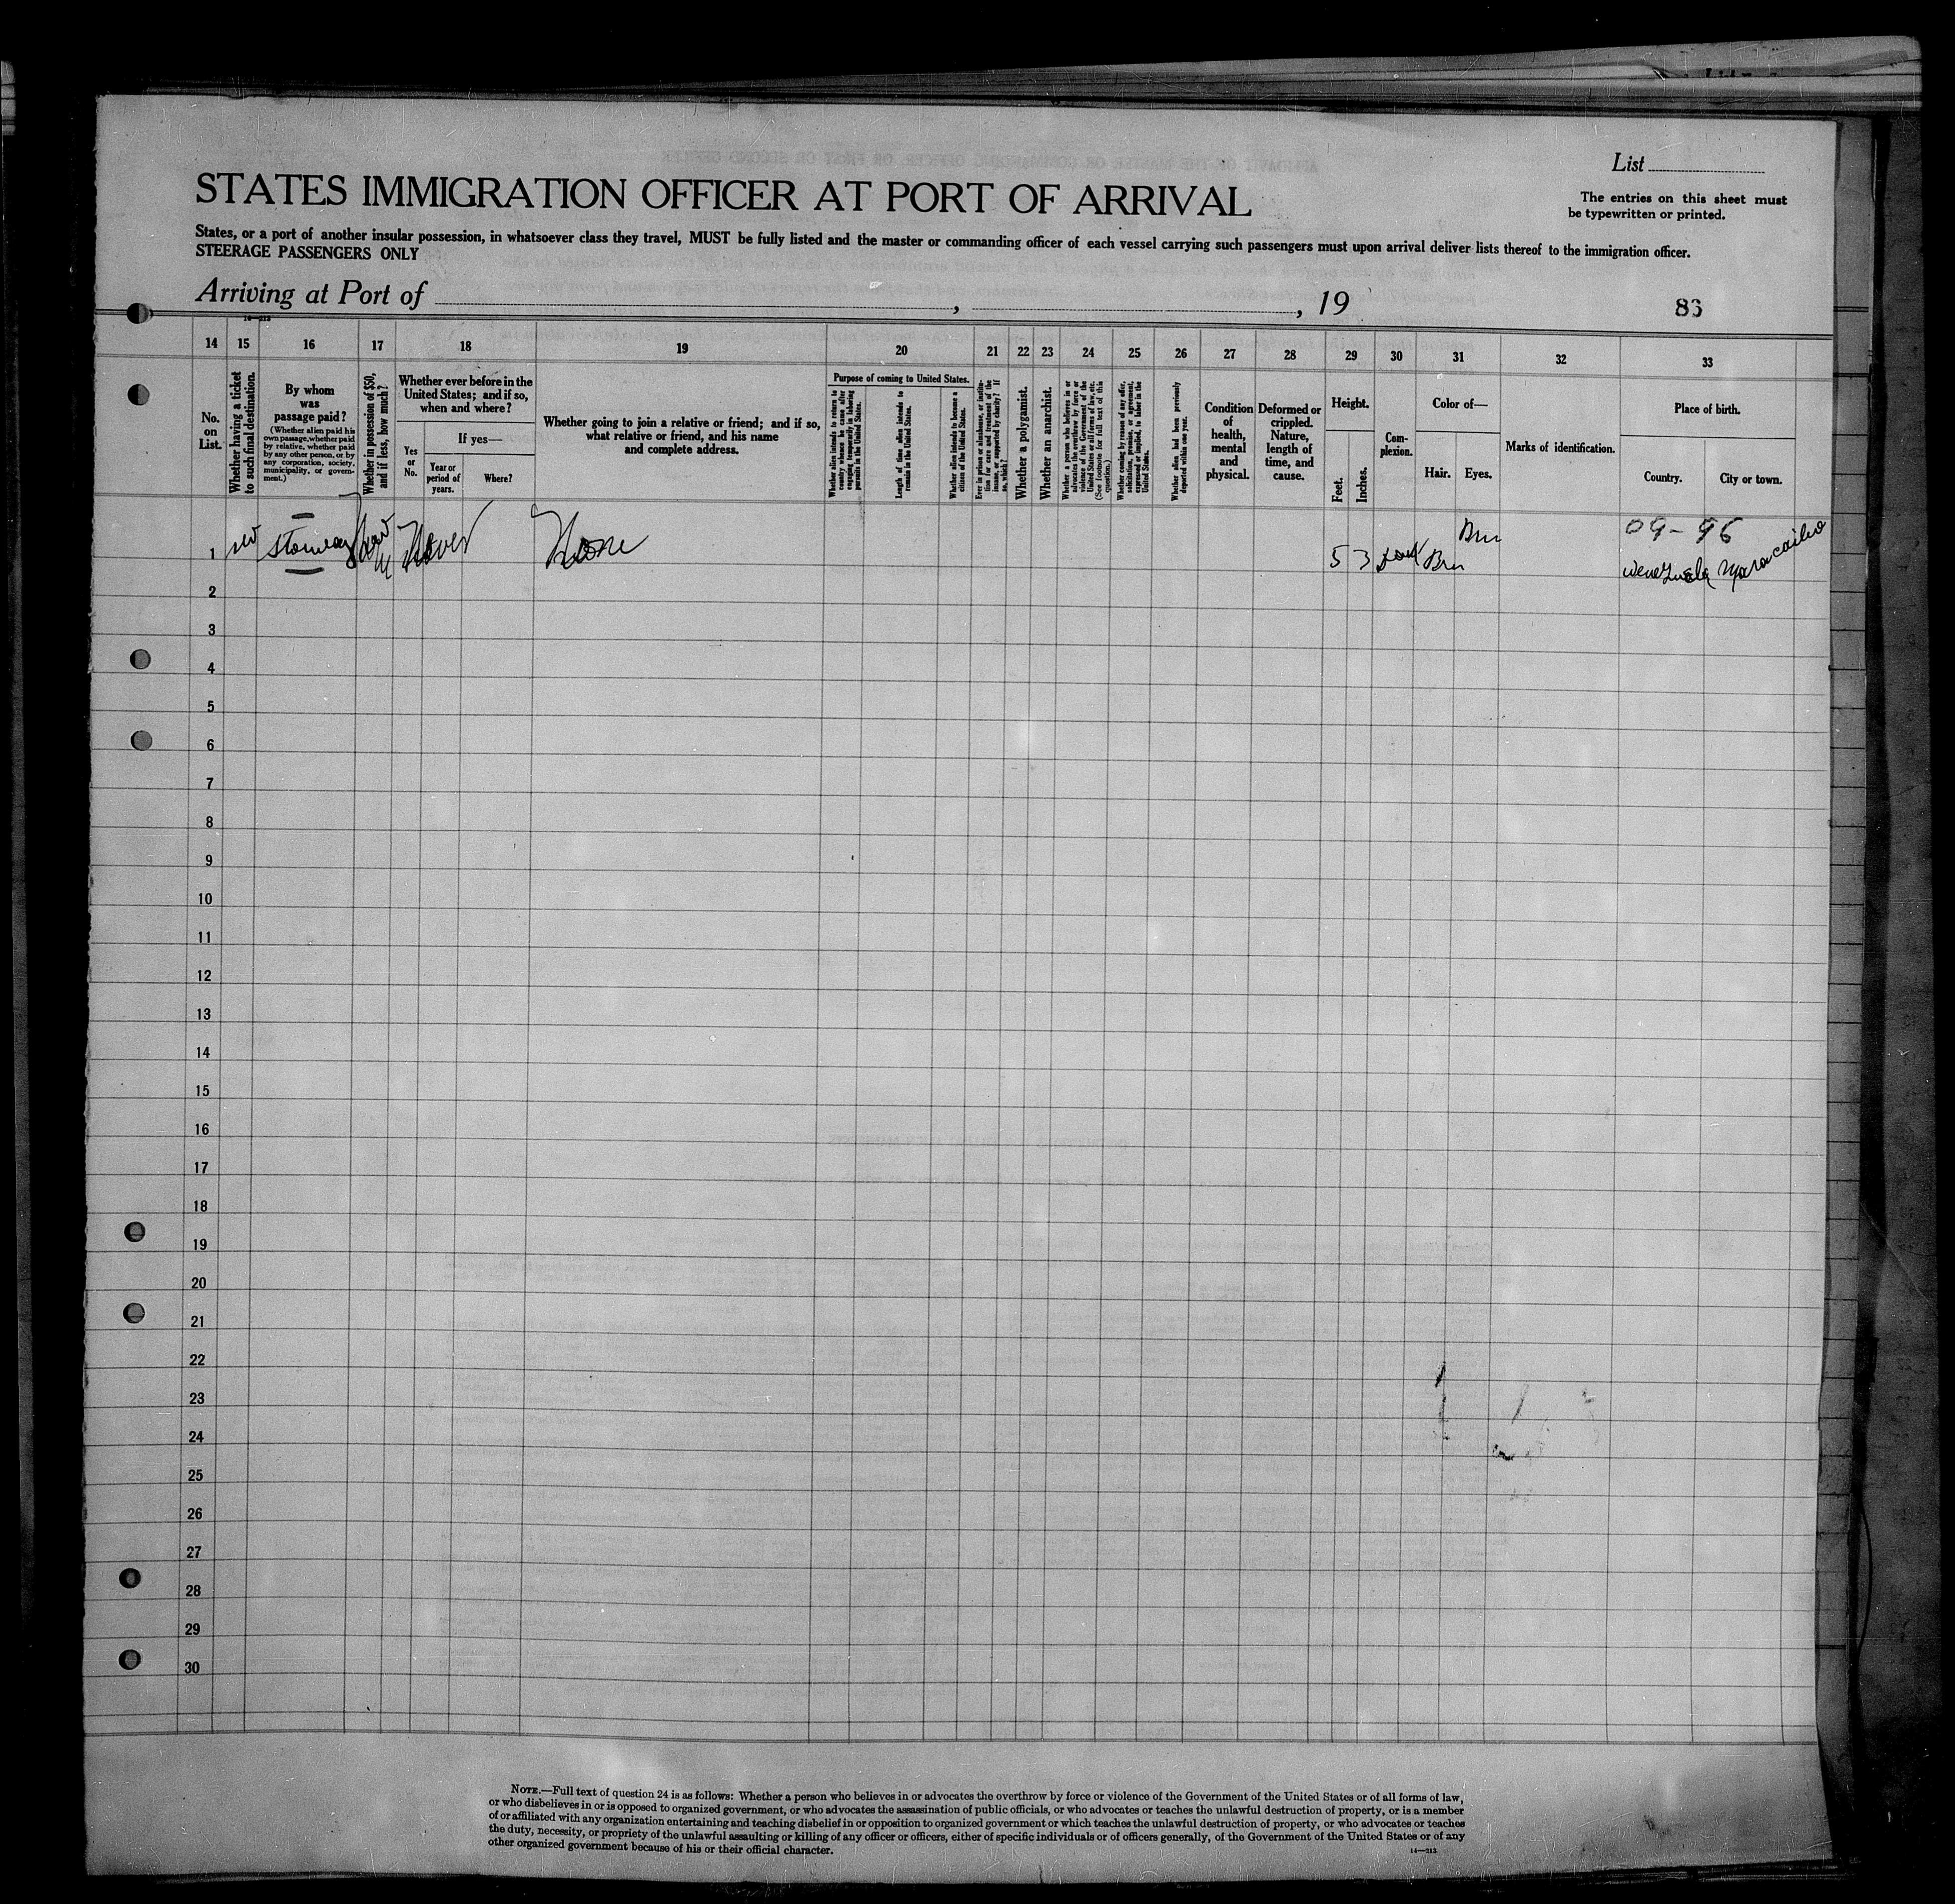 List
STATES IMMIGRATION OFFICER AT PORT OF ARRIVAL
The entries on this sheet must
be typewritten or printed.
States, or a port of another insular possession, in whatsoever class they travel, MUST be fully listed and the master or commanding officer of each vessel carrying such passengers must upon arrival deliver lists thereof to the immigration officer.
STEERAGE PASSENGERS ONLY
Arriving at Port of , , 19
83
14—213
14 15 16 17 18 19 20 21 22 23 24 25 26 27 28 29 30 31 32 33
No.
on
List.
Whether having a ticket
to such final destination.
By whom
was
passage paid?
(Whether alien paid his
own passage, whether paid
by relative, whether paid
by any other person, or by
any corporation, society,
municipality, or govern-
ment.)
Whether in possession of $50,
and if less, how much?
Whether ever before in the
United States; and if so,
when and where?
Yes
or
No.
If yes—
Year or
period of
years.
Where?
Whether going to join a relative or friend; and if so,
what relative or friend, and his name
and complete address.
Purpose of coming to United States.
Whether alien intends to return to
country whence he came after
engaging temporarily in laboring
pursuits in the United States.
Length of time alien intends to
remain in the United States.
Whether alien intends to become a
citizen of the United States.
Ever in prison or almshouse, or institu-
tion for care and treatment of the
insane, or supported by charity? If
so, which?
Whether a polygamist.
Whether an anarchist.
Whether a person who believes in or
advocates the overthrow by force or
violence of the Government of the
United States or all forms of law, etc.
(See footnote for full text of this
question.)
Whether coming by reason of any offer,
solicitation, promise, or agreement,
expressed or implied, to labor in the
United States.
Whether alien had been previously
deported within one year.
Condition
of
health,
mental
and
physical.
Deformed or
crippled.
Nature,
length of
time, and
cause.
Height.
Feet.
Inches.
Com-
plexion.
Color of—
Hair. Eyes.
Marks of identification.
Place of birth.
Country. City or town.
09-96
1 Stowaway Never None 5 3 Dark Brn Brn Venezuela Maracaibo
2
3
4
5
6
7
8
9
10
11
12
13
14
15
16
17
18
19
20
21
22
23
24
25
26
27
28
29
30
NOTE.—Full text of question 24 is as follows: Whether a person who believes in or advocates the overthrow by force or violence of the Government of the United States or of all forms of law,
or who disbelieves in or is opposed to organized government, or who advocates the assassination of public officials, or who advocates or teaches the unlawful destruction of property, or is a member
of or affiliated with any organization entertaining and teaching disbelief in or opposition to organized government or which teaches the unlawful destruction of property, or who advocates or teaches
the duty, necessity, or propriety of the unlawful assaulting or killing of any officer or officers, either of specific individuals or of officers generally, of the Government of the United States or of any
other organized government because of his or their official character.
14—213